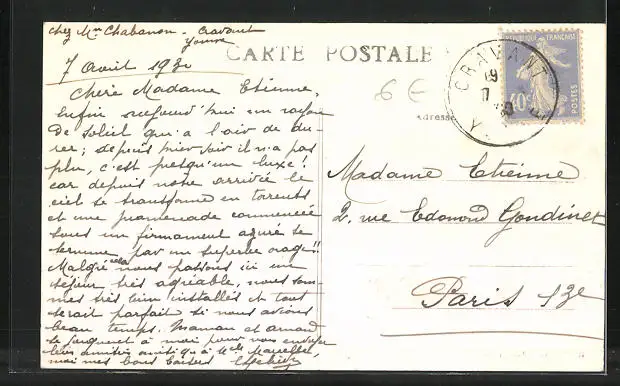 chez Mme Chabanon - Cravant
Yonne
CARTE POSTALE
7 Avril 1930
Chère Madame Etienne,
Enfin aujourd'hui un rayon
de soleil qui a l'air de du-
rer ; depuis hier soir il n'a pas
plu, c'est presqu'un luxe !
car depuis notre arrivée le
ciel se transforme en torrents
et une promenade commencée
sous un firmament azuré se
termine par un superbe orage !!
Malgré cela nous passons ici un
séjour très agréable, nous som-
mes très bien installés et tout
serait parfait si nous avions
beau temps. Maman et Armand
se joignent à moi pour vous envoyer
leurs amitiés ainsi qu'à Mlle Marcelle,
moi mes bons baisers
6 €
Adresse
CRAVANT
19
7
Y
RÉPUBLIQUE FRANÇAISE
40c
POSTES
Madame Etienne
2, rue Edmond Gondinet
Paris 13e